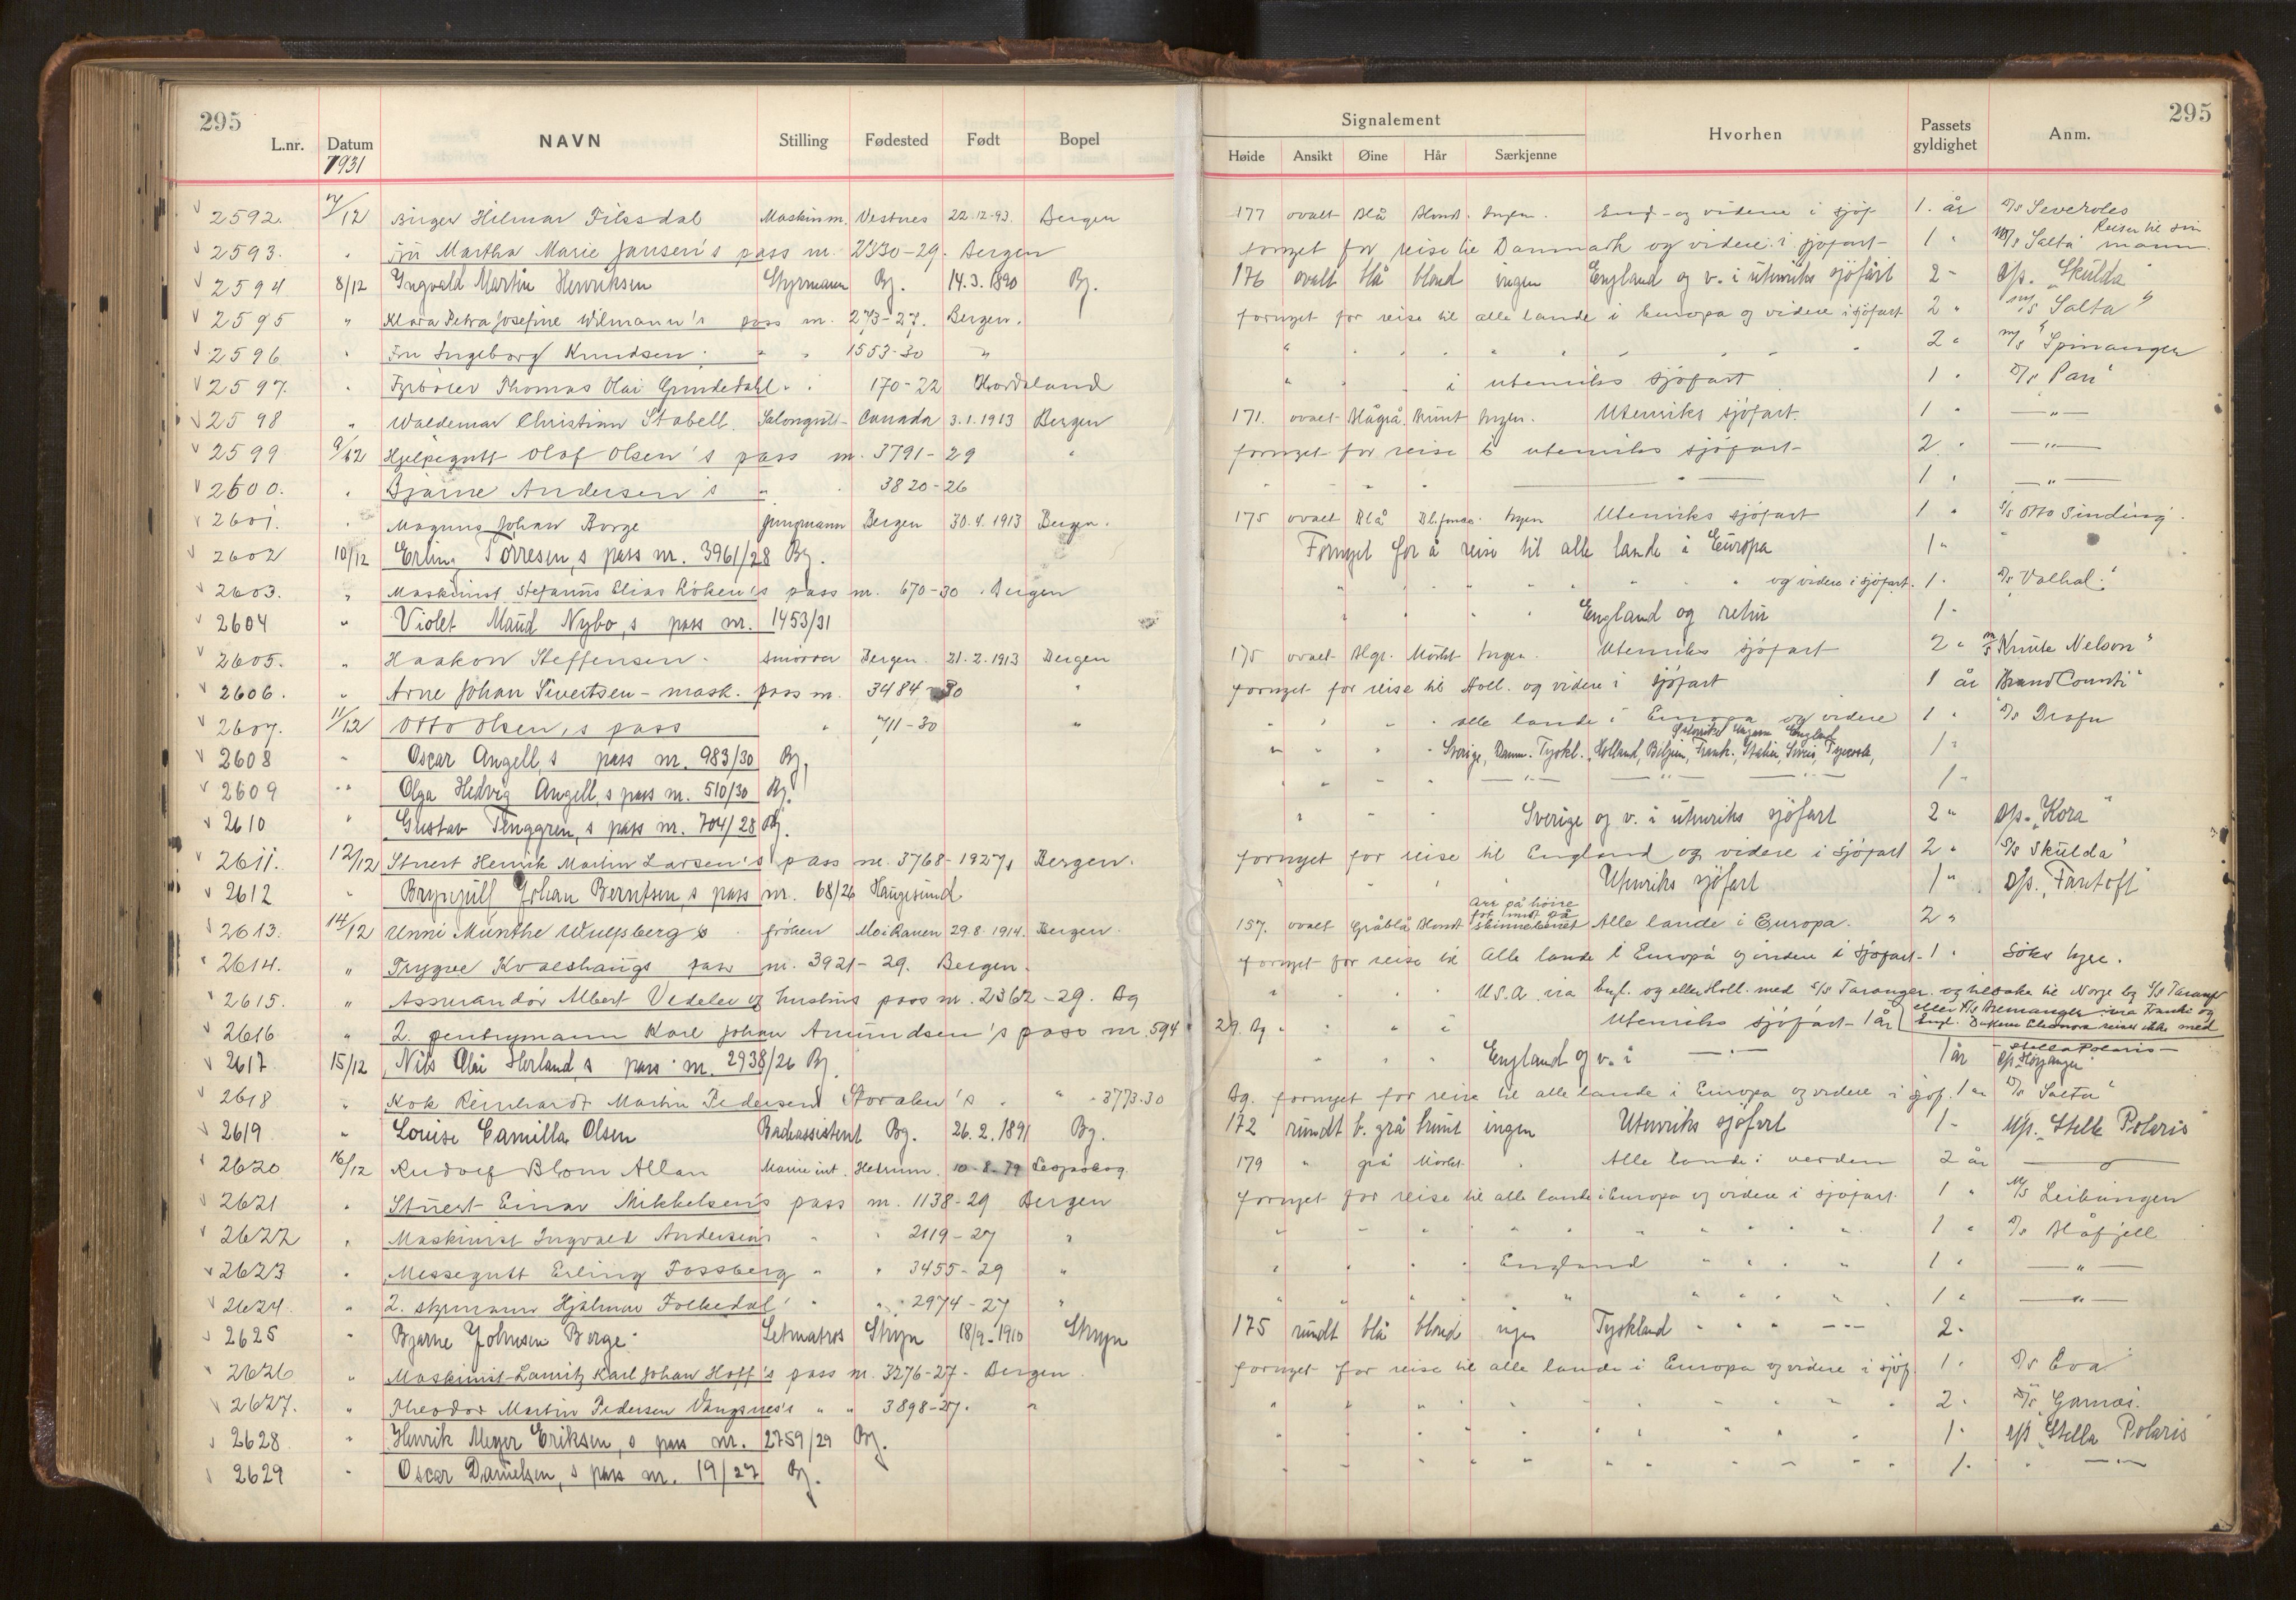 295
295
L.nr. Datum NAVN Stilling Fødested Født Bopel Signalement Høide Ansikt Øine Hår Særkjenne Hvorhen Passets gyldighet Anm.
1931
2592. 7/12 Birger Hilmar Maskinm. Vestnes 22-12-93. Bergen 177 ovalt Blå Blond. Ingen. Engl- og videre i sjöf 1. år
Reiser til sin
2593. " Fru Martha Marie Jansen's pass nr. 2830-29. Bergen fornyet for reise til Danmark og videre i sjöfart 1 " M/s Salta mann.
2594 8/12 Ingvald Martin Henriksen Styrmann Bg. 14.3.1890 Bg. 176 ovalt blå blond ingen England og v. i utenriks sjöfart 2 - D/s. "Skulda"
2595 " Klara Petra Josefine Wilmann's pass nr. 273-27. Bergen. fornyet for reise til alle lande i Europa og videre i sjöfart 2 " M/s Salta"
2596 " Fru Ingeborg Knudsen " " 1553-30 " 2 " M/s Spinanger
2597. " Fyrböter Thomas Olai Grundedahl " " 170-22 Hordaland " " " i utenriks sjöfart 1 " D/s Pan"
2598 " Waldemar Christian Stabell. Salongutt Canada 3.1.1913 Bergen 171. ovalt Blågrå. Brunt Ingen. Utenriks sjöfart. 1 " — " —
2599 9/12 Hjelpegutt Olaf Olsen's pass nr. 3791-29 " fornyet for reise i utenriks sjöfart 2 " — " —
2600. " Bjarne Andersen's " " 3820-26 1 " — " —
2601. " Magnus Johan Borge Jungmann Bergen 30.4.1913 Bergen. 175 ovalt Blå Ingen Utenriks sjöfart 1 " S/s Otto Sinding.
2602 10/12 Erling Torresen,s pass nr. 3961/28 Bg. Fornyet for å reise til alle lande i Europa 1 "
2603. " Maskinist Stefanus Elias Röken's pass nr. 670-30. Bergen og videre i sjöfart. 1 " D/s "Valhal."
2604 " Violet Maud Nybo,s pass nr. 1453/31 England og retur 1 -
2605. " Haakon Steffensen. Smörer Bergen. 21.2.1913 Bergen 175 ovalt Blgr. Mörkt Ingen. Utenriks sjöfart 2 " M/s Knute Nelson"
2606. " Arne Johan Sivertsen - mask. pass nr. 3484-30 " fornyet for reise til Holl. og videre i sjöfart 1 år "Brand Counti"
2607. 11/12 Otto Olsen,s pass " 711-30 " " " " " alle lande i Europa og videre 1 " D/s Drafn
Östrike Ungarn England
2608 " Oscar Angell,s pass nr. 983/30 Bg. " " " " Sverige, Danm. Tyskl., Holland, Belgien, Frank., Italien, 1 "
2609 " " Olga Hedvig Angell,s pass nr. 510/30 Bg. 1 -
2610 " Gustav Tenggren,s pass nr. 704/28 Bg. Sverige og v. i utenriks sjöfart 2 " D/s. "Kora"
2611. 12/12 Stuert Henrik Martin Larsen's pass nr. 3768-1927, Bergen. fornyet for reise til England og videre i sjöfart 2 " S/s Skulda"
2612 " Brynjulf Johan Berntsen,s pass nr. 68/26 Haugesund Utenriks sjöfart 1 " D/s. "Fantoft"
Arr på höire
fot midt på
2613. 14/12 Unni Munthe Wulfsberg fröken Mo i Ranen 29.8.1914. Bergen 157. ovalt Gråblå Blondt skinnebenet Alle lande i Europa. 2 "
2614. " Trygve Kvaleshaugs pass nr. 3921-29. Bergen. fornyet for reise til Alle lande i Europa og videre i sjöfart. 1 " Söker hyre.
2615. " Assurandör Albert Vedeler og hustrus pass nr. 2362-29. Bg U.S.A. via Engl. og eller Holl. med S/s Taranger. og tilbake til Norge
2616 " 2. pentrymann Karl Johan Amundsen's pass nr. 594 29. Bg Utenriks sjöfart - 1 år
Stella Polaris
2617 15/12 Nils Olai Herland,s pass nr. 2938/26 Bg. England og v. i — " — 1 år D/s. Höyanger
2618 " Kok Reinhardt Martin Pedersen Storalen's " " 3773-30 Bg. fornyet for reise til alle lande i Europa og videre i sjöf. 1 år D/s Salta"
2619 " Louise Camilla Olsen Badeassistent Bg. 26.2.1891 Bg. 172 rundt b.grå brunt ingen Utenriks sjöfart 1 - M/s. "Stella Polaris"
2620 16/12 Rudolf Blom Allan Hedrum. 10-8-79 179 " grå Mörkt. " Alle lande i verden 2 år
2621 " Stuert Einar Mikkelsen's pass nr. 1138-29 Bergen fornyet for reise til alle lande i Europa og videre i sjöfart. 1 " M/s Leikangen
2622 " Maskinist Ingvald Andersen's " " 2119-27 " 1 " D/s Blåfjell
2623 " Messegutt Erling Fossberg " " 3455-29 " England 1 " — " —
2624. " 2. styrmann Hjalmar Folkedal " " 2974-27 " 1 " — " —
2625 " Bjarne Johnsen Berge Letmatros Stryn 18/9-1910 Stryn 175 rundt blå blond ingen Tyskland 2 -
2626 " Maskinist Lauritz Karl Johan Hoff's pass nr. 3276-27 - Bergen. fornyet for reise til alle lande i Europa og videre i sjöf. 1 " D/s Eva
2627. " Theodor Martin Pedersen Vangsnes's " " 3898-27. " 2 "
2628 " Henrik Meyer Eriksen,s pass nr. 2759/29 Bg. 1 - "Stella Polaris"
2629 " Oscar Danielsen,s pass nr. 19/27 Bg. 1 -